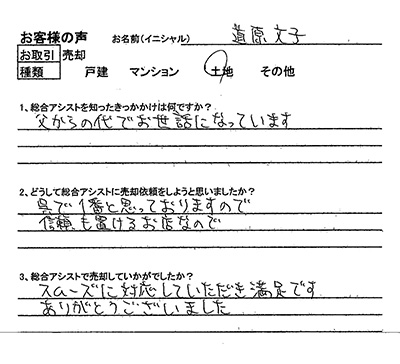 お客様の声 お名前(イニシャル) 道原文子
お取引 売却
種類 戸建 マンション 土地 その他
1、総合アシストを知ったきっかかけは何ですか?
父からの代でお世話になっています
2、どうして総合アシストに売却依頼をしようと思いましたか?
呉で1番と思っておりますので
信頼も置けるお店なので
3、総合アシストで売却していかがでしたか?
スムーズに対応していただき満足です
ありがとうございました